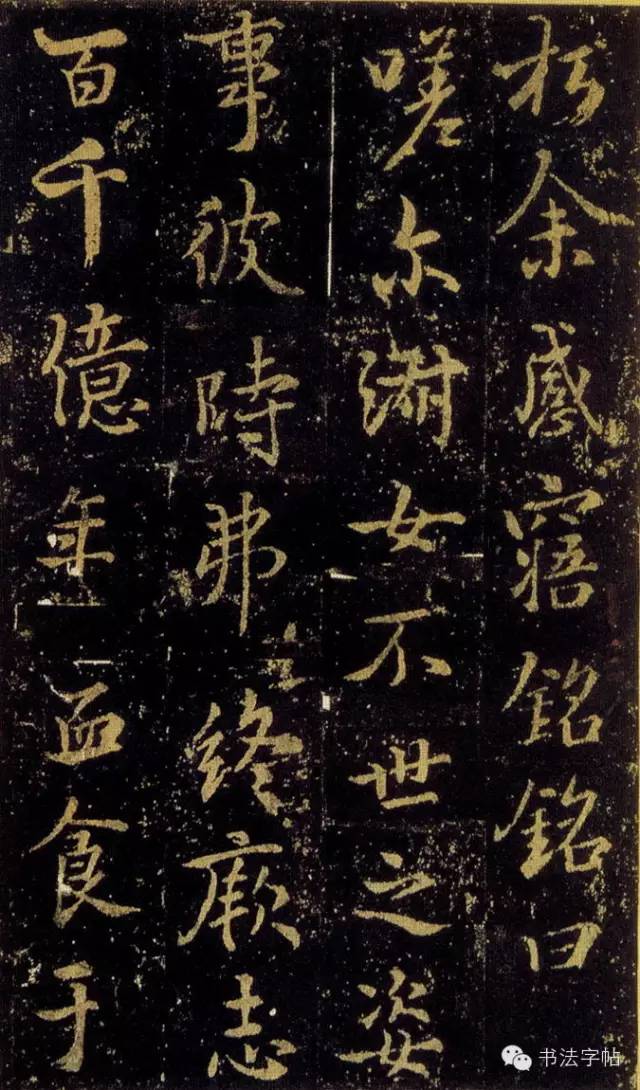 扵余感寤銘銘曰
嗟尓淑女不世之姿
事彼時弗終厥志
百千億年血食于
书法字帖